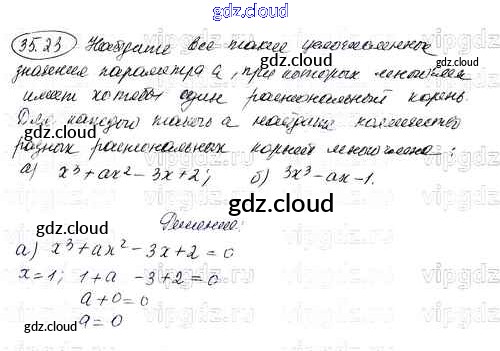 gdz.cloud
35.23 Найдите все такие целочисленные
значения параметра а, при которых многочлен
имеет хотя бы один рациональный корень.
Для каждого такого а найдите количество
разных рациональных корней многочлена:
а) x³+ax²-3x+2; б) 3x³-ax-1.
gdz.cloud
Решение:
а) x³+ax²-3x+2=0
x=1; 1+a -3+2=0
a+0=0
a=0
gdz.cloud
gdz.cloud
gdz.cloud
gdz.cloud
gdz.cloud
gdz.cloud